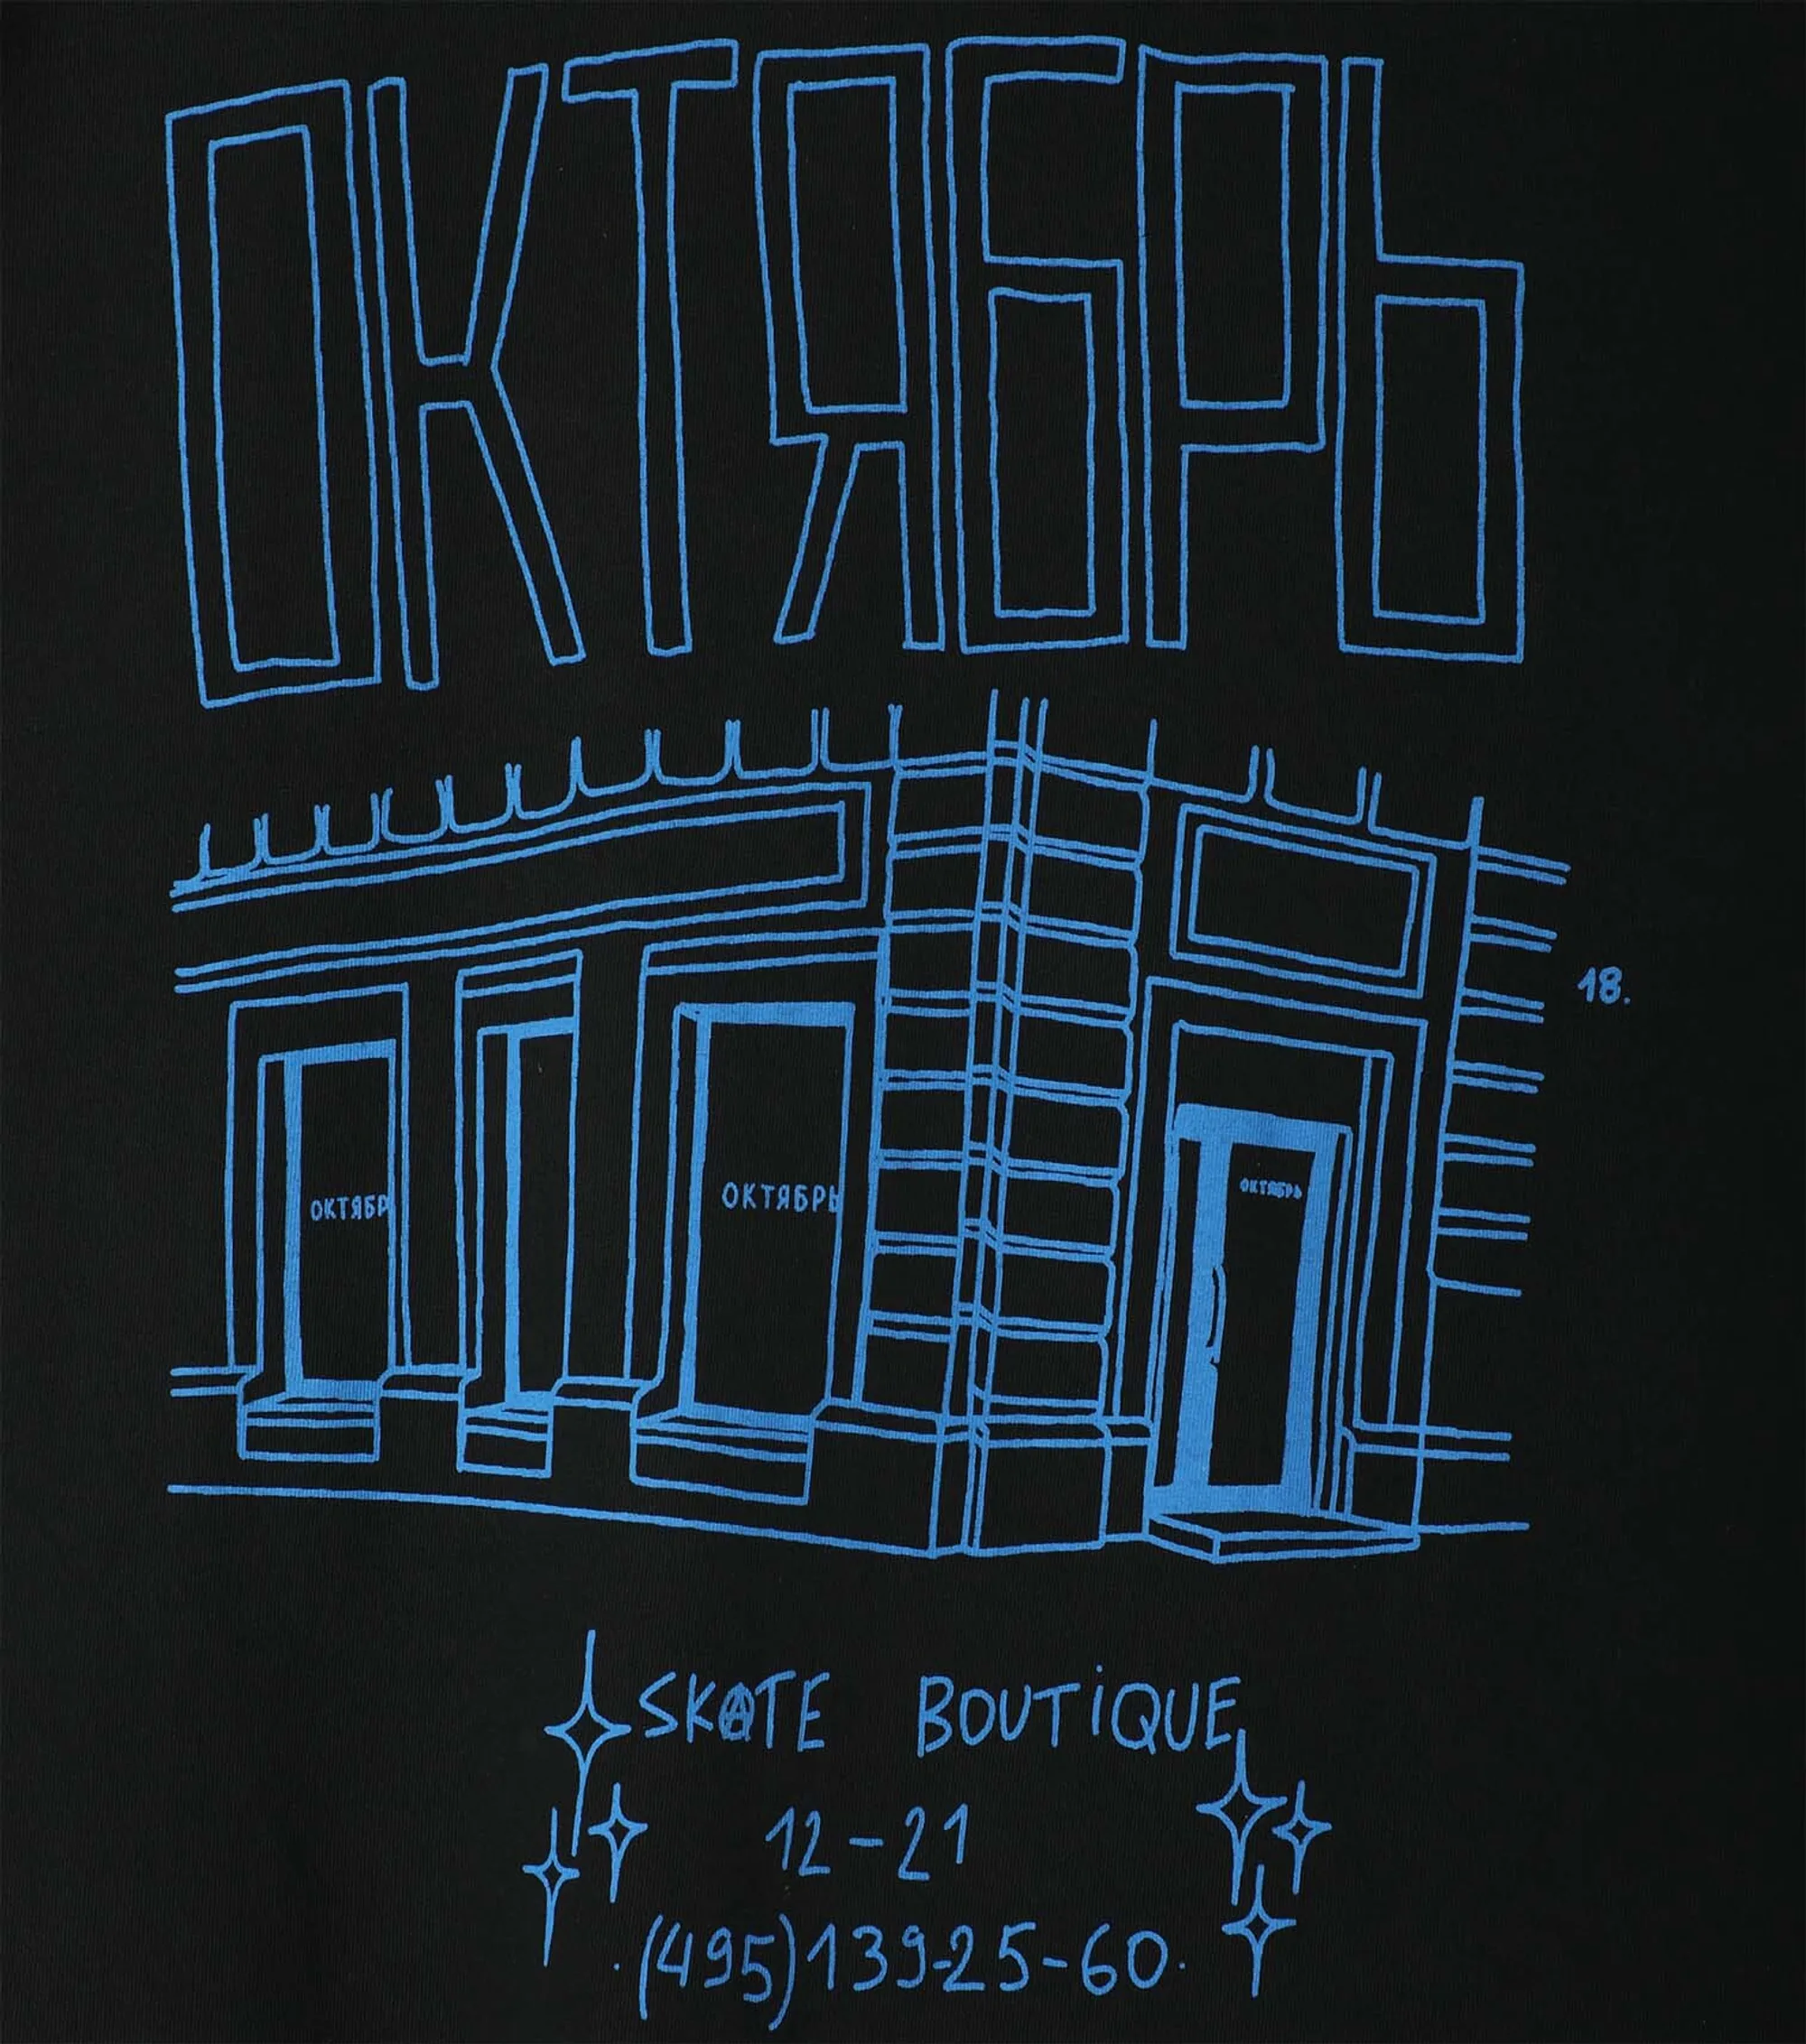 ОКТЯБРЬ
18.
ОКТЯБР
ОКТЯБРЬ
ОКТЯБРЬ
SKATE BOUTiQUE
12-21
.(495)139-25-60.